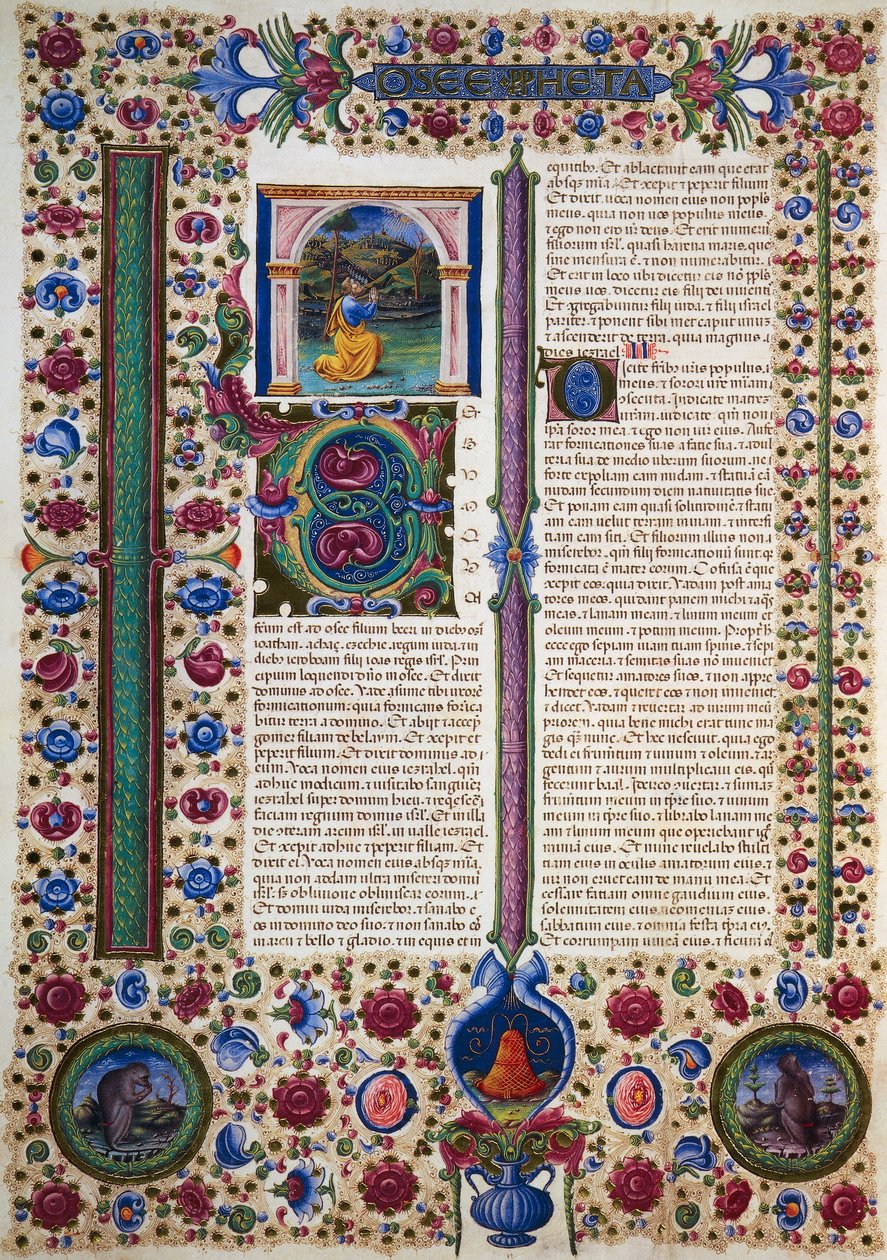 OSEE PPHETA
ctum est ad osee filium beeri in dieb ozi
ioathan. achaz. ezechie regum iuda. in
dieb ieroboam filii ioas regis isrl. Prin
cipium loquendi dno in osee. Et dixit
dominus ad osee. Vade asume tibi uxore
fornicationum. quia fornicans forni
bitur terra a domino. Et abijt & accep
gomer filiam debelaym. Et cxepit &
peperit filium. Et dixit dominus ad
eum. Voca nomen eius iezrahel. qm
adhuc modicum. & uisitabo sanguine
iezrahel super domum hieu. & reqescere
faciam regnum domus isrl. Et in illa
die cteram arcum isrl. in ualle iezrael.
Et cxepit adhuc & peperit filiam. Et
dixit ei. Voca nomen eius absq mia.
quia non addam ultra misereri domui
isrl. sz obliuione obliuiscar eorum.
Et domui iuda miserebor. & sanabo e
os in domino deo suo. & non sanabo eos
in arcu & bello & gladio. & in equis et in
equitib. Et ablactauit eam que erat
absq mia. Et cxepit & peperit filium
Et dixit. uoca nomen eius non popls
meus. quia non uos populus meus.
& ego non ero ur deus. Et erit numeri
filiorum isrl. quasi harena maris. que
sine mensura e. & non numerabitur.
Et erit in loco ubi dicetur eis no ppls
meus uos. dicetur eis filij dei uiuenti
Et cgregabuntur filij iuda. & filij israel
pariter. & ponent sibimet caput unuz
& ascenderit de terra. quia magnus
dies iezrael. II
Dicite frib uris populus.
meus. & sorori ure miam
csecuta. Iudicate matrez
uram. iudicate. qm non
ipa soror mea. & ego non uir eius. Aufe
rat fornicationes suas a facie sua. & adul
teria sua de medio uberum suorum. ne
forte expoliam eam nudam. & statuam ea
nudam secundum diem natiuitatis sue
Et ponam eam quasi solitudine. & statu
am eam uelut terram inuiam. & interfi
ciam eam siti. Et filiorum illius non
miserebor. qm filii fornicationu sunt. q
fornicata e mater eorum. Cofusa e que
cxepit eos. quia dixit. Vadam post ama
tores meos. qui dant panem michi & aqs
meas. & lanam meam. & linum meum et
oleum meum. & potum meum. Propt h
ecce ego sepiam uiam tuam spinis. & sepi
am maceria. & semitas suas no inueniet
Et sequetur amatores suos. & non appre
hendet eos. & queret eos & non inueniet
& dicet. Vadam & reuertar ad uirum meum
priorem. quia bene michi erat tunc ma
gis qz nunc. Et hec nesciuit. quia ego
dedi ei frumtum & uinum & oleum. & ar
gentum & aurum multiplicaui eis. q
fecerunt baal. Idcirco uertar. & sumaz
frumtum meum in tpre suo. & uinum
meum in tpre suo. & librabo lanam me
am & linum meum que operiebant ig
miniam eius. Et nunc reuelabo stulti
ciam eius in oculis amatorum eius. &
uir non eruet eam de manu mea. Et
cessare faciam omne gaudium eius.
solemnitatem eius. neomeniaz eius.
sabbatum eius. & omnia festa tpra ei
Et corrumpam uinea eius. & ficum e